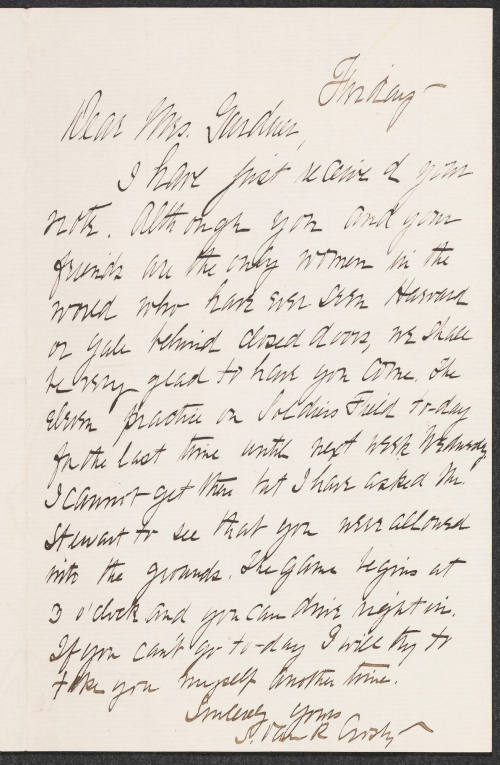 Friday —
Dear Mrs. Gardner,
I have just received your
note. Although you and your
friends are the only women in the
world who have ever seen Harvard
or Yale behind closed doors, we shall
be very glad to have you come. The
eleven practice on Soldiers Field to-day
for the last time until next week Wednesday
I cannot get there but I have asked Mr.
Stewart to see that you were allowed
into the grounds. The game begins at
3 o'clock and you can drive right in.
If you can't go to-day I will try to
take you myself another time.
Sincerely yours
Crosby